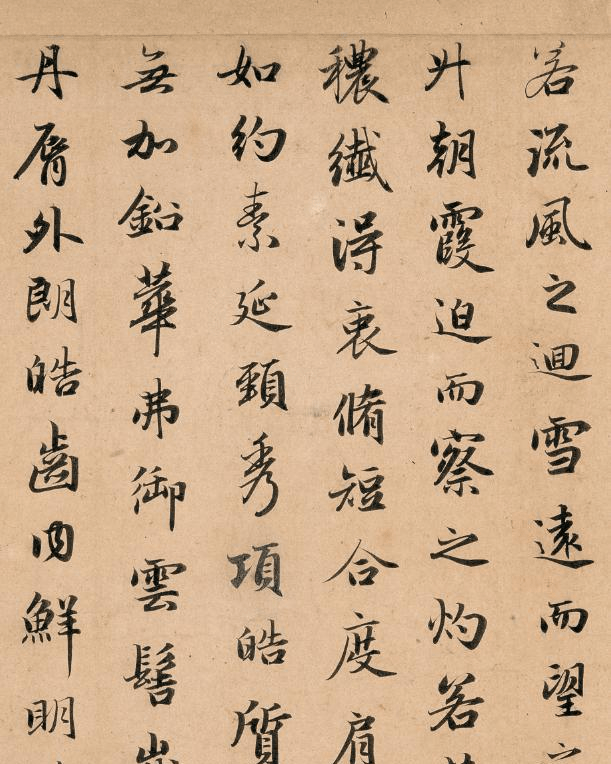 若流風之迴雪遠而望之
升朝霞迫而察之灼若
穠纖得衷脩短合度肩
如約素延頸秀項皓質
無加鉛華弗御雲髻
丹脣外朗皓齒內鮮明